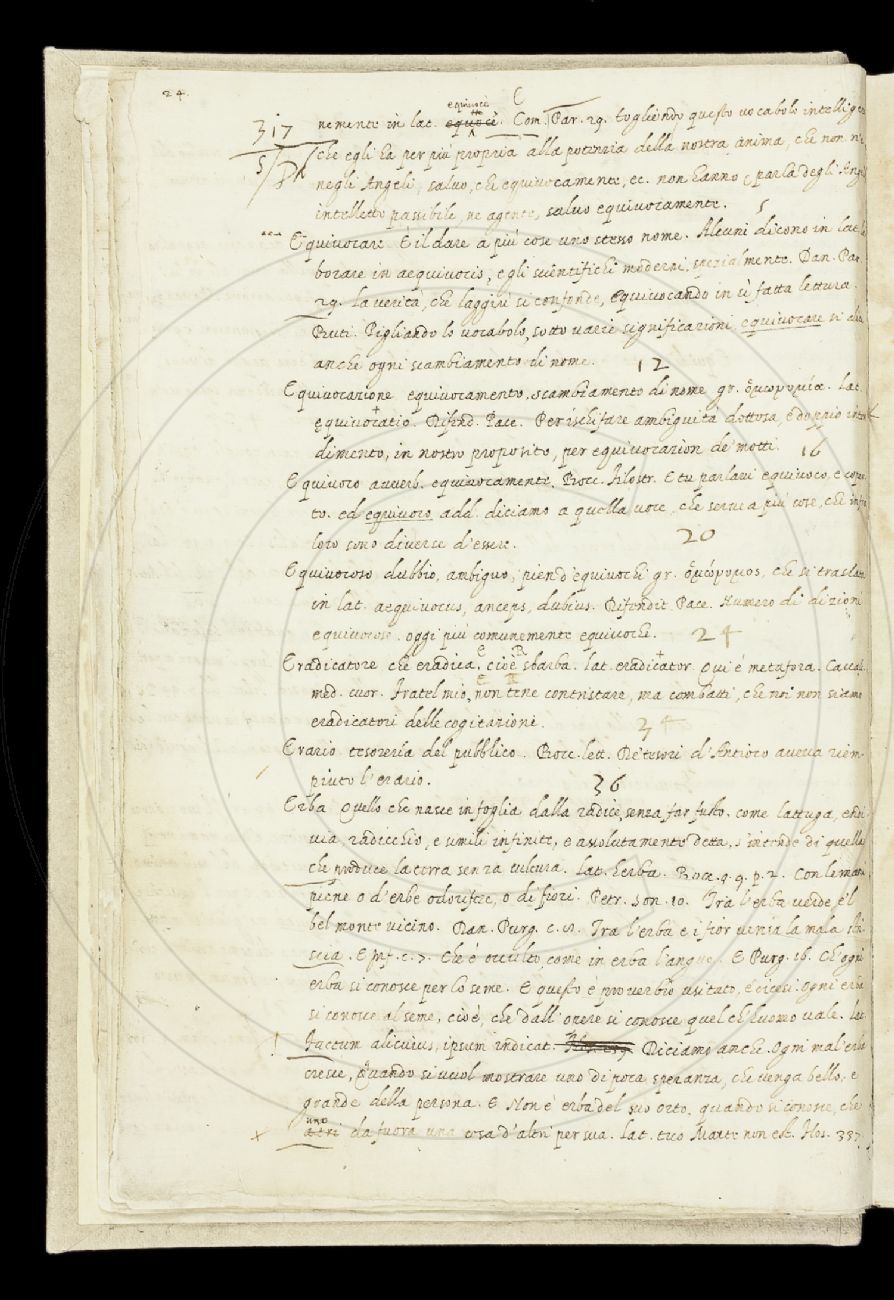 24.
equivocè
317 nemente in lat. equocè. Com. Par. 29. togliendo questo vocabolo intellige
5 che egli ha per piú propria alla potenzia della nostra anima, che non n'è
negli Angeli, salvo, che equivocamente, ec. non hanno, parla degli Angeli
intelletto passibile, ne agente, salvo equivocamente. 5
Equivocare È il dare a piú cose uno stesso nome. Alcuni dicono in lat. la
borare in aequivocis, e gli scientifichi moderni, spezialmente. Dan. Par.
29. La verità, che laggiú si confonde, Equivocando in sì fatta lettura.
Buti. Pigliando lo vocabolo, sotto varie significazioni equivocare si chia
anche ogni scambiamento di nome. 12
Equivocazione equivocamento, scambiamento di nome gr. ὁμωνυμία. Lat.
equivocatio. Difend. Pace. Per ischifare ambiguità dottosa, e doppio inten
dimento, in nostro proposito, per equivocazion de' motti. 16
Equivoco avverb. equivocamente. Bocc. Filostr. E tu parlavi equivoco, e coper
to. ed equivoco add. diciamo a quella voce, che serve a piú cose, che infra
loro sono diverse d'essere. 20
Equivocoso dubbio, ambiguo, pien d'equivochi gr. ὁμώνυμος, che si traslata
in lat. aequivocus, anceps, dubius. Difendit. Pace. Numero di dizioni
equivocoso. oggi piú comunemente equivochi. 24
Eradicatore che eradica, cioè sbarba. lat. eradicator. Qui è metafora. Cavcal.
med. cuor. Fratel mio, non tene contristare, ma combatti, che noi non siamo
eradicatori delle cogitazioni. 34
Erario tesoreria del pubblico. Bocc. lett. De' tesori d'Antioco aveva riem-
piuto l'erario. 36
Erba Quello che nasce in foglia dalla radice, senza far fusto. come lattuga, endi
via, radicchio, e simili infinite, e assolutamente detta, s'intende di quella
che produce la terra senza cultura. Lat. herba. Bocc. g. 9. p. 2. Con le mani
piene o d'erbe odorifere, o di fiori. Petr. Son. 10. Tra l'erba verde, e 'l
bel monte vicino. Dan. Purg. c. 8. Tra l'erba e i fior venia la mala stri
scia. E Inf. c. 7. Che è occulto, come in erba l'angue. E Purg. 16. Ch'ogni
erba si conosce per lo seme. E questo è proverbio usitato, e dicesi. Ogni erba
si conosce al seme, cioè, che dall'opere si conosce quel ch'huomo vale. Lat.
Factum alicuius, ipsum indicat. Diciamo anche. Ogni mal'erba
cresce, Quando si vuol mostrare uno di poca speranza, che venga bello, e
grande della persona. E Non è erba del suo orto, quando si conosce, che
uno
altri da fuora una cosa d'altri per sua. Lat. tuo Marte non est. Flos. 337.